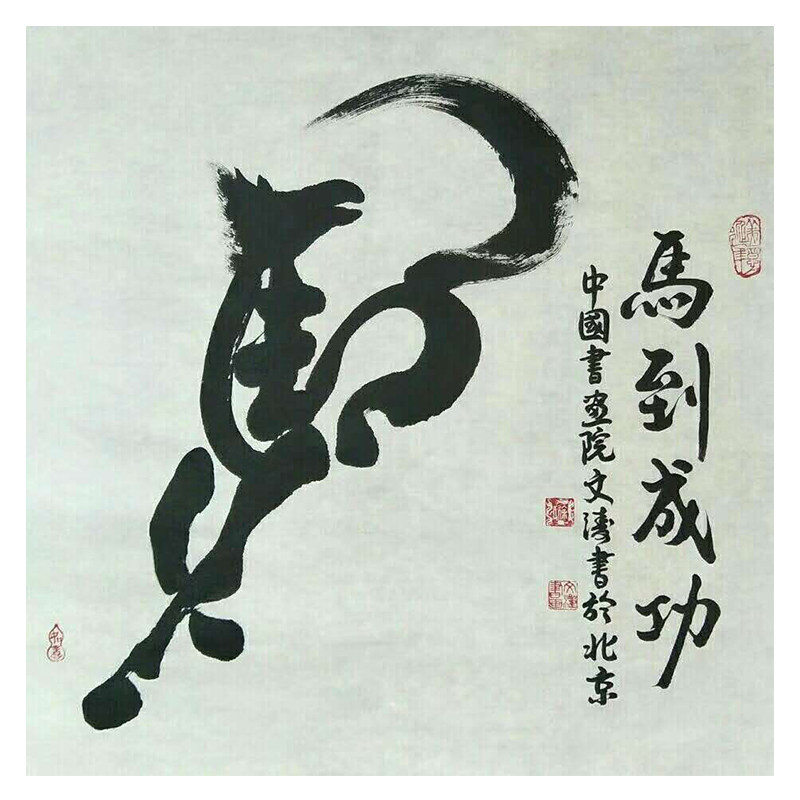 馬到成功
中國書画院文濤書於北京